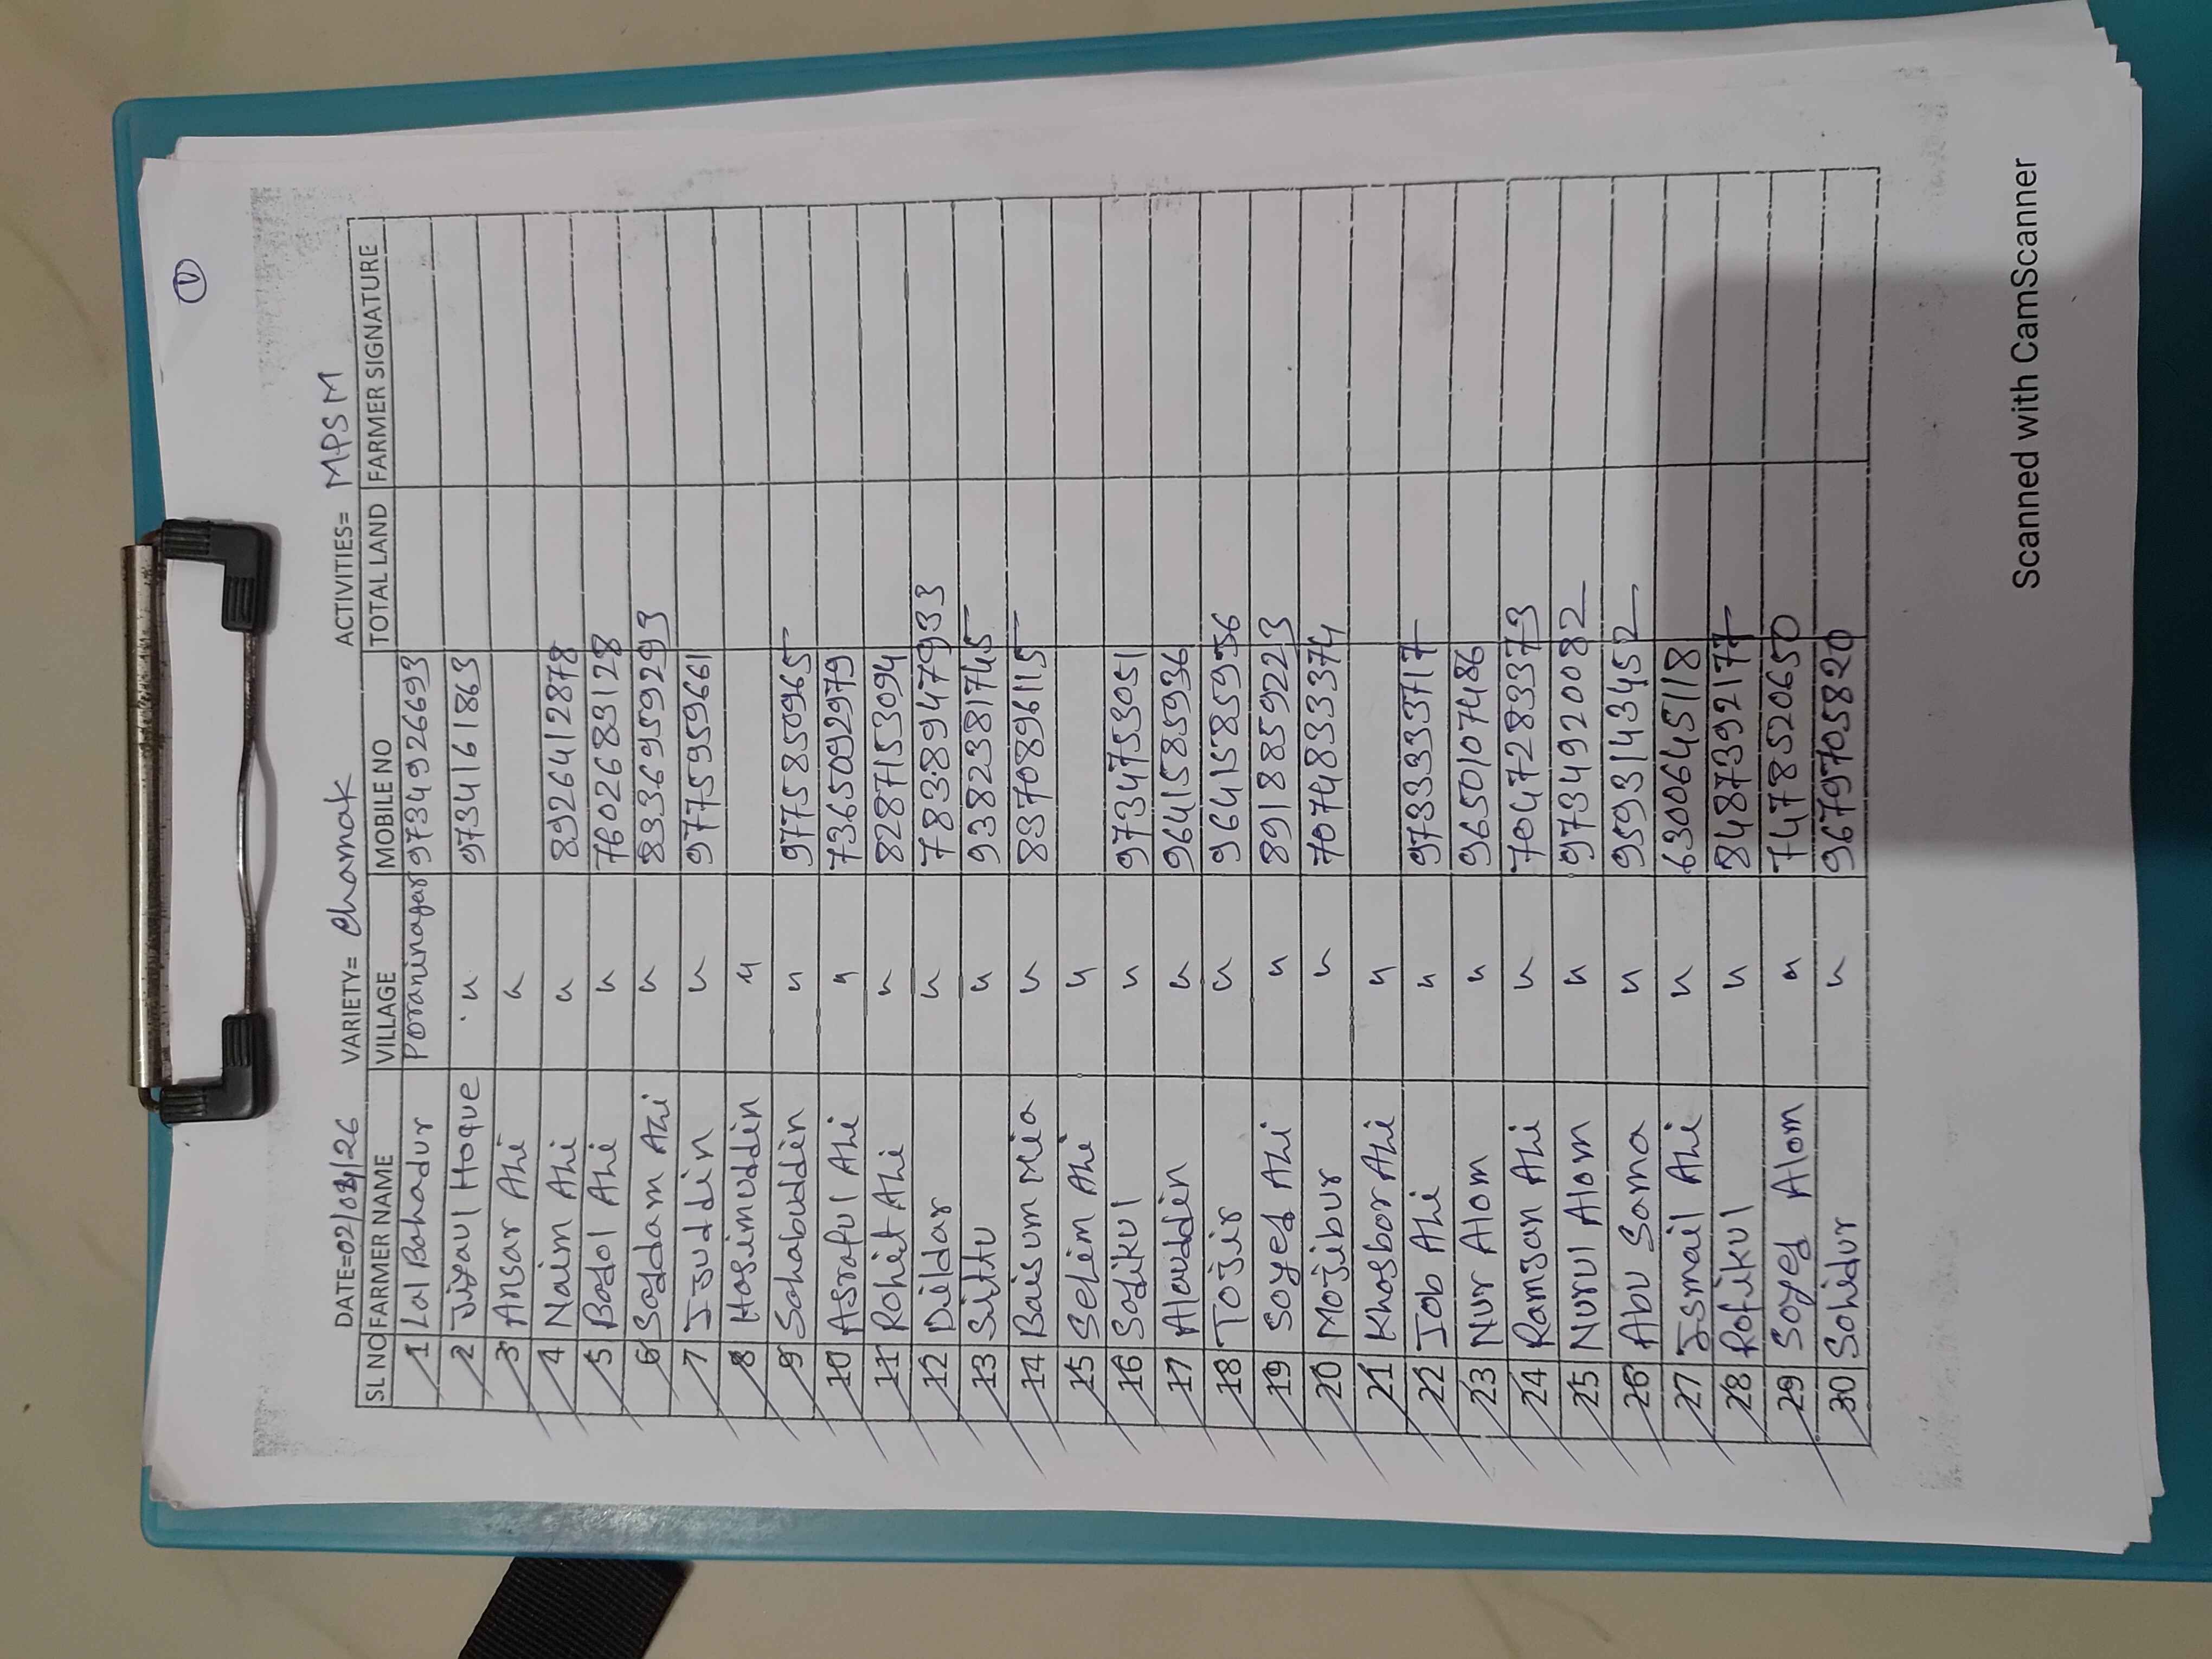 1
DATE=02/03/26 VARIETY= Chamak ACTIVITIES= MPSM
SL NO FARMER NAME VILLAGE MOBILE NO TOTAL LAND FARMER SIGNATURE
1 Lal Bahadur Poraninagar 9734926693
2 Jiyaul Hoque " 9734161863
3 Ansar Ali "
4 Naim Ali " 8926412878
5 Badol Ali " 7602683128
6 Saddam Ali " 8336959293
7 Isuddin " 9775959661
8 Hasimuddin "
9 Sahabuddin " 9775850965
10 Asraful Ali " 7365092979
11 Rohit Ali " 8287153094
12 Dildar " 7838947933
13 Sittu " 9382381745
14 Baisum Mia " 8370896115
15 Selim Ali "
16 Sadikul " 9734753051
17 Alauddin " 9641585936
18 Tojir " 9641585936
19 Soyed Ali " 8918859223
20 Mojibur " 7074833374
21 Khosbor Ali "
22 Job Ali " 9733333717
23 Nur Alom " 9650107486
24 Ramjan Ali " 7047283373
25 Nurul Alom " 9734920082
26 Abu Sama " 9593143452
27 Ismail Ali " 6300645118
28 Rofikul " 8487392177
29 Soyed Alom " 7478520650
30 Sohidur " 9679705820
Scanned with CamScanner